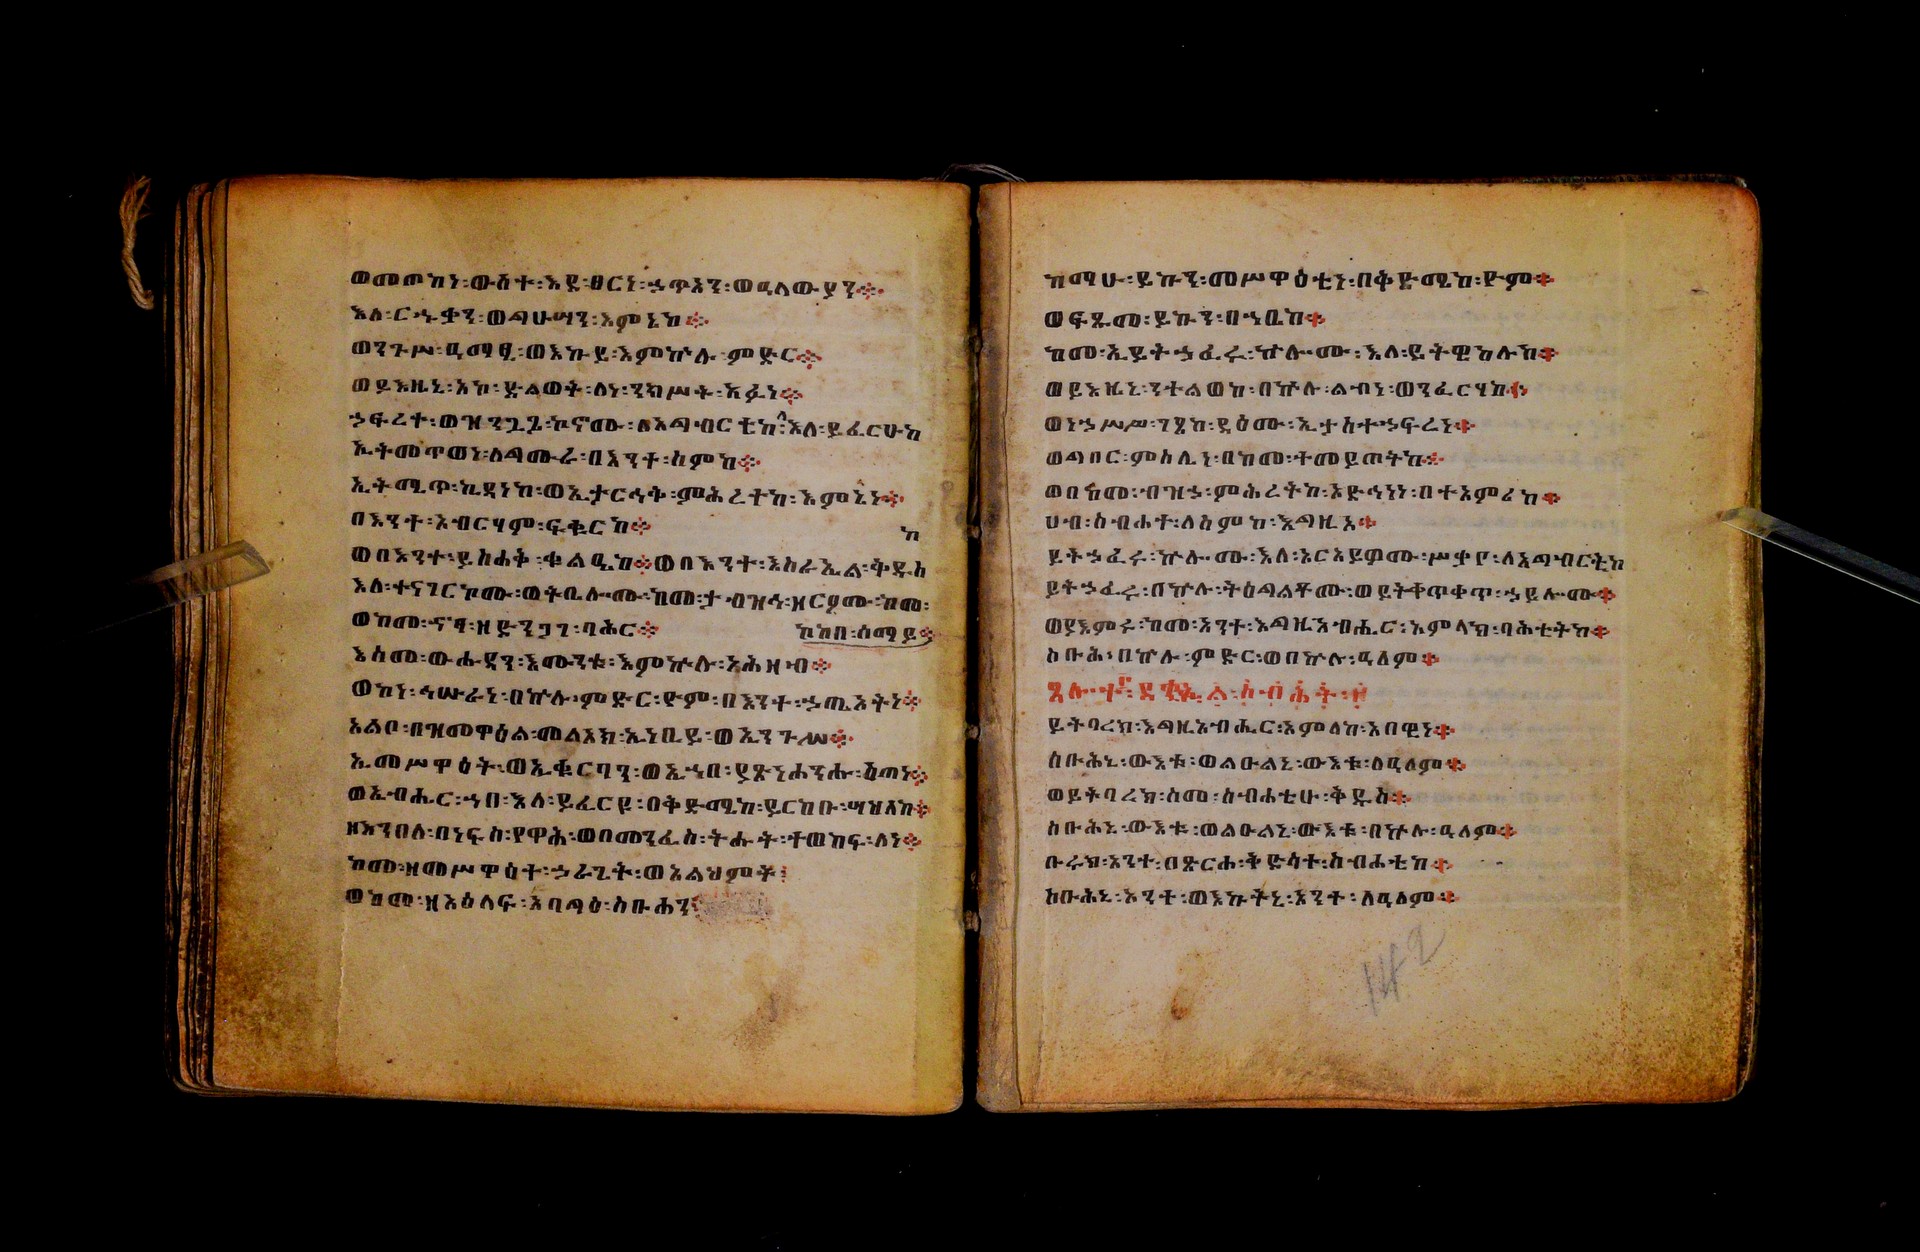 ወመጦከነ፡ውስተ፡እደ፡ፀርነ፡ኃጥአን፡ወዲለውያን፨
እለ፡ርኁቃን፡ወጫሁሣን፡እምኔከ፨
ወንጉሥ፡ዲማፂ፡ወእኩይ፡እምኵሉ፡ምድር፨
ወይእዜኒ፡አኮ፡ድልወት፡ለነ፡ንክሥት፡አፉነ፨
ኃፍረተ፡ወዝንጓጔ፡ኮኖሙ፡ለአግብርቲከ፡እለ፡ይፈርሁከ
ኢትመጥወነ፡ለግሙራ፡በእንተ፡ስምከ፨
ኢትሚጥ፡ኪዳነከ፡ወኢታርኅቅ፡ምሕረተከ፡እምኔነ፨
በእንተ፡አብርሃም፡ፍቁርከ፨
ወበእንተ፡ይስሐቅ፡ቁልዔከ፨ወበእንተ፡እስራኤል፡ቅዱስ
ከ
እለ፡ተናገርኮሙ፡ወትቤሎሙ፡ከመ፡ታብዝኅ፡ዘርዖሙ፡ከመ፡
ኮከበ፡ሰማይ፨
ወከመ፡ኖፃ፡ዘድንጋገ፡ባሕር፨
እስመ፡ውሑዳን፡እሙንቱ፡እምኵሉ፡አሕዛብ፨
ወከነ፡ኅሡራነ፡በኵሉ፡ምድር፡ዮም፡በእንተ፡ኃጢአትነ፨
አልቦ፡በዝመዋዕል፡መልአክ፡ኢነቢይ፡ወኢንጉሠ፨
ኢመሥዋዕት፡ወኢቁርባን፡ወኢኀበ፡ያጼንሐንሑ፡ዕጣነ፨
ወእብሔር፡ኀበ፡እለ፡ይፈርዩ፡በቅድሜከ፡ይርከቡ፡ሣህለከ፨
ዘእንበለ፡በነፍስ፡የዋሕ፡ወበመንፈስ፡ትሑት፡ተወከፍ፡ለነ፨
ከመ፡ዘመሥዋዕተ፡ኃራጊት፡ወአልህምት፡
ወከመ፡ዘአዕላፍ፡አባግዕ፡ስቡሐን፡
ከማሁ፡ይኩን፡መሥዋዕቲነ፡በቅድሜከ፡ዮም፨
ወፍጹመ፡ይኩን፡በኀቤከ፨
ከመ፡ኢይትኃፈሩ፡ኵሎሙ፡እለ፡ይትዌከሉከ፨
ወይእዜኒ፡ንተልወከ፡በኵሉ፡ልብነ፡ወንፈርሃከ፨
ወነኃሥሥ፡ገጸከ፡ዳዕሙ፡ኢታስተኃፍረነ፨
ወግበር፡ምስሌነ፡በከመ፡ተመይጦትከ፨
ወበከመ፡ብዝኃ፡ምሕረትከ፡አድኅነነ፡በተአምሪከ፨
ሀብ፡ስብሐተ፡ለስምከ፡እግዚአ፨
ይትኃፈሩ፡ኵሎሙ፡እለ፡አርአይዎሙ፡ሥቃየ፡ለአግብርቲከ
ይትኃፈሩ፡በኵሉ፡ትዕግልቶሙ፡ወይትቀጥቀጥ፡ኃይሎሙ፨
ወያእምሩ፡ከመ፡አንተ፡እግዚአብሔር፡አምላክ፡ባሕቲትከ፨
ስቡሕ፡በኵሉ፡ምድር፡ወበኵሉ፡ዓለም፨
ይትባረክ፡እግዚአብሔር፡አምላከ፡አበዊነ፨
ስቡሕኒ፡ውእቱ፡ወልዑልኒ፡ውእቱ፡ለዓለም፨
ወይትባረክ፡ስመ፡ስብሐቲሁ፡ቅዱስ፨
ስቡሕኒ፡ውእቱ፡ወልዑልኒ፡ውእቱ፡በኵሉ፡ዓለም፨
ቡሩክ፡አንተ፡በጽርሐ፡ቅድሳተ፡ስብሐቲከ፨
ስቡሕኒ፡አንተ፡ወእኩትኒ፡አንተ፡ለዓለም፨
142